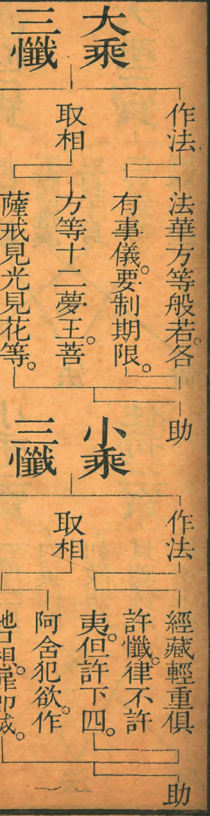 大乘
三懺
作法
法華方等般若。各
有事儀。要制期限。
助
取相
方等十二夢王。菩
薩戒見光見花等。
小乘
三懺
作法
經藏輕重俱
許懺。律不許
夷。但許下四。
助
取相
阿含犯欲。作